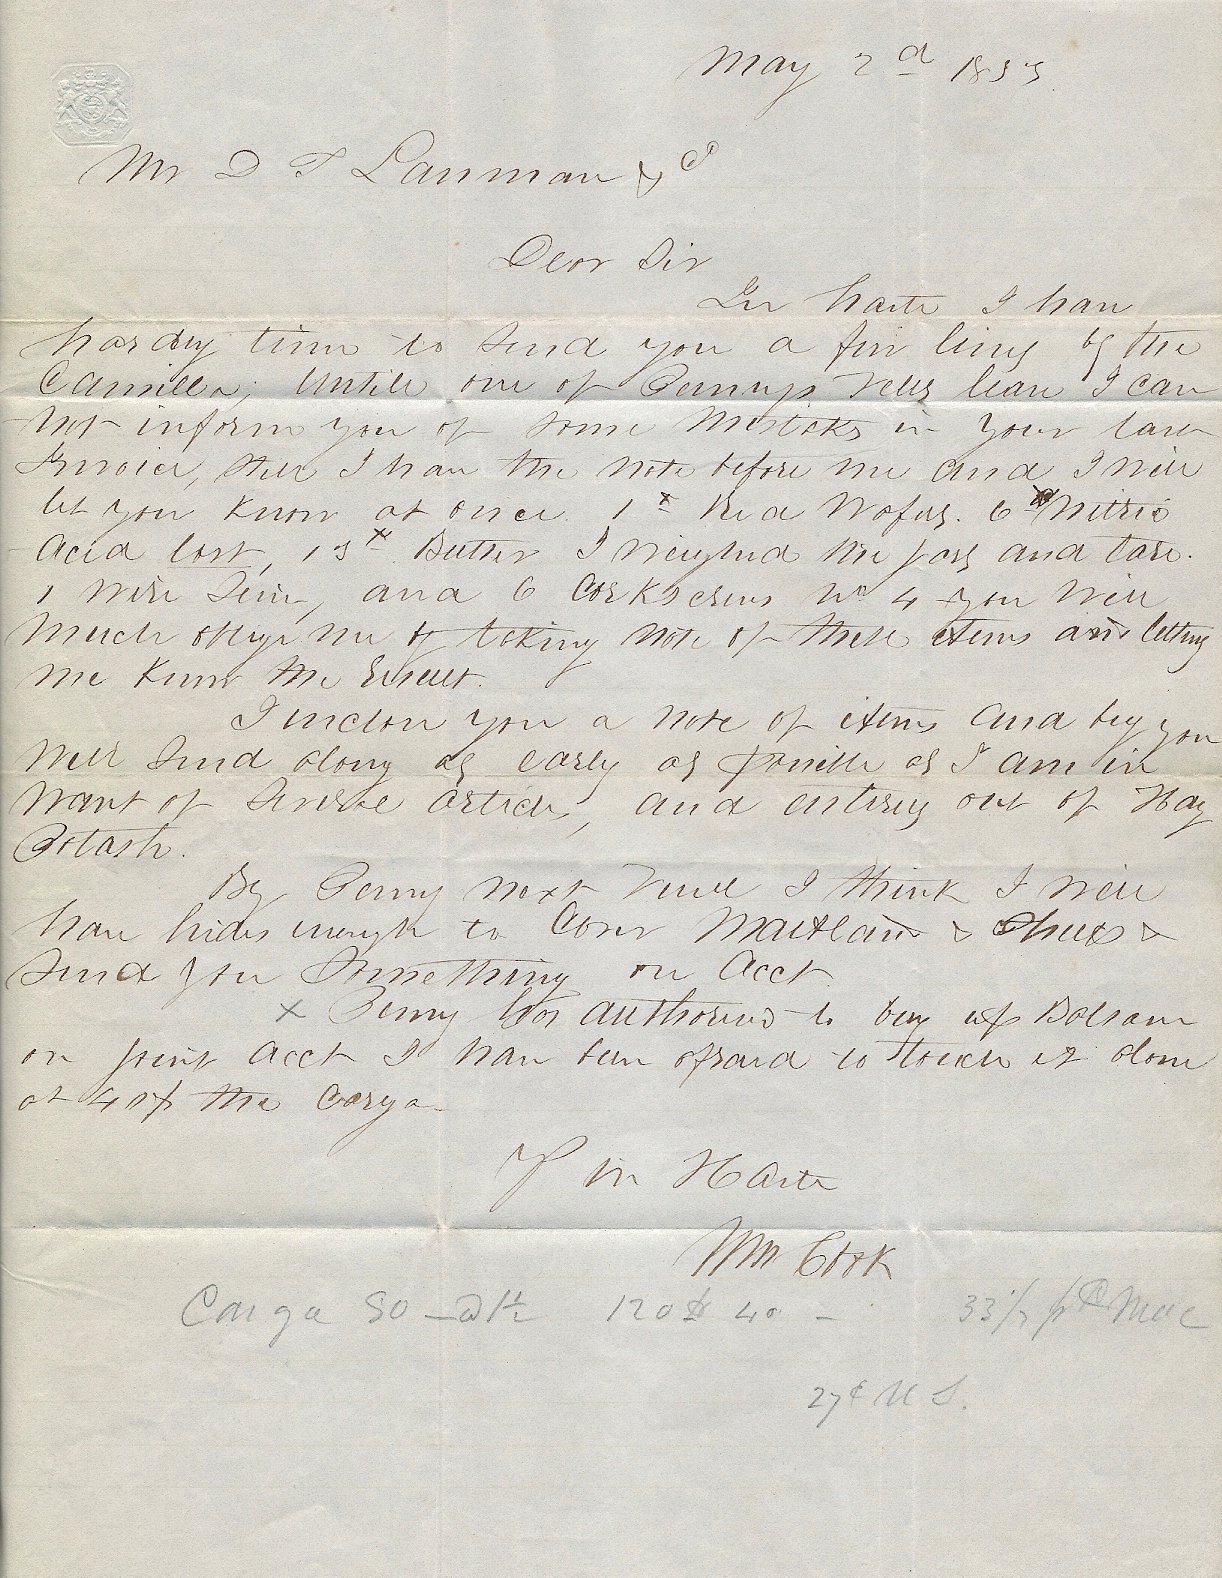 May 2d 1853
Mr D T Lanman & Co
Dear Sir
In haste I have
hardly time to send you a few lines by the
Camilla, Untill one of Pennys Vells leave I can
not inform you of some Mistaks in your last
Invoice, still I have the note before me and I will
let you know at once. 1 Red Wafers. 6 Nitric
Acid lost, 13 Butter I weighed the jars and tare.
1 Wire Seive, and 6 Corkscrews No 4 you will
much oblige me by taking note of these items and letting
me know the result.
I inclose you a note of items and beg you
will send along as early as possible as I am in
want of several articles, and entirely out of Hay
Potash.
By Penny next Vessel I think I will
have hides enough to cover Maitland &
send you Something on Acct
x Penny has authorised to buy up Balsam
on joint acct I have been afraid to touch it alone
at 40$ the Carga
Y in Haste
Wm Cook
Carga 80 120 lb 40 - 33 1/3 Mac
27¢ U S.